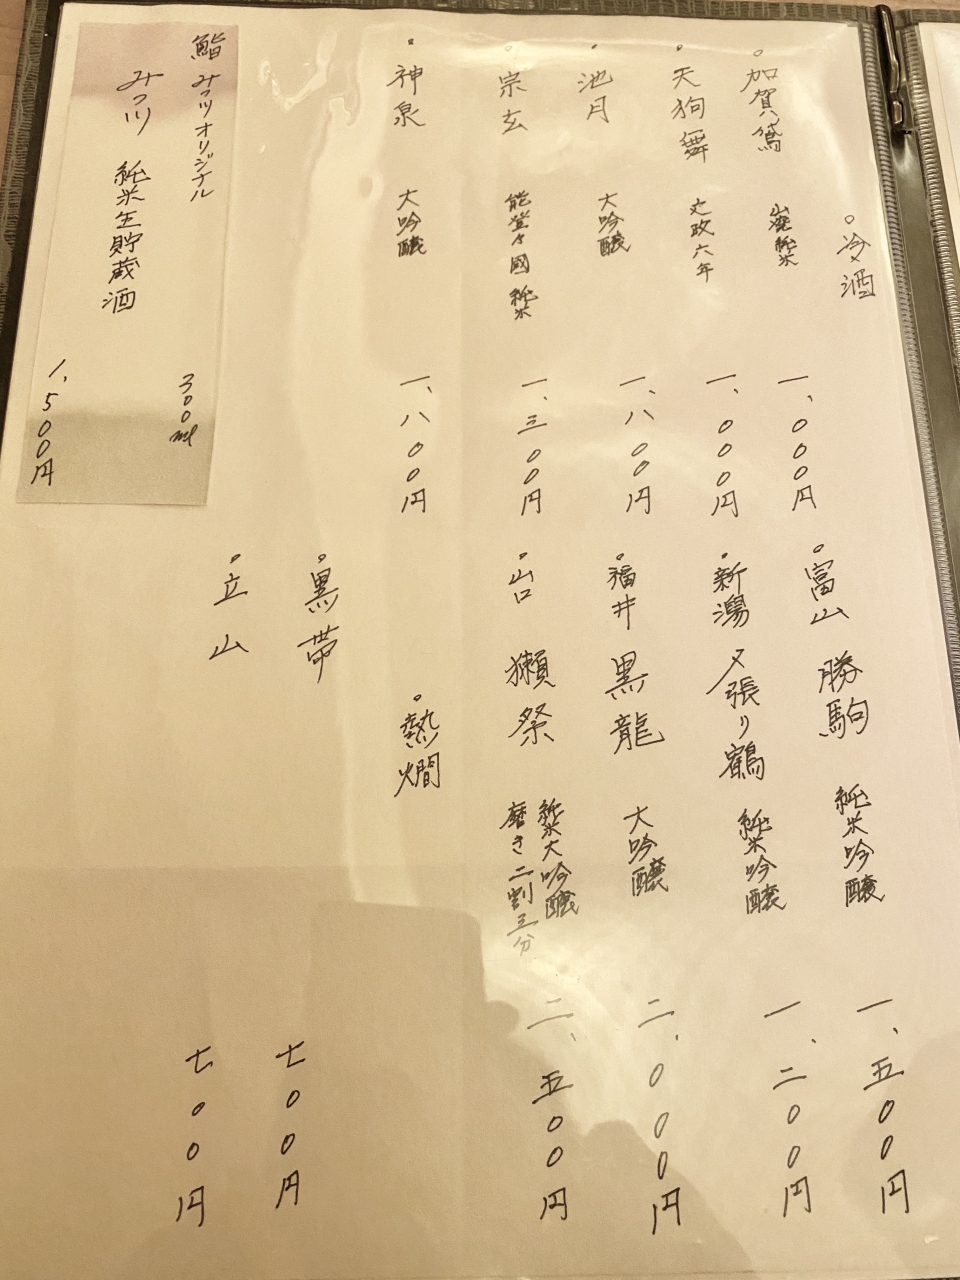 冷酒
加賀鳶 山廃純米 一、000円
天狗舞 文政六年 一、000円
池月 大吟醸 一、八00円
宗玄 能登乃國 純米 一、三00円
神泉 大吟醸 一、八00円
富山 勝駒 純米吟醸 一、五00円
新潟 〆張り鶴 純米吟醸 一、二00円
福井 黒龍 大吟醸 二、000円
山口 獺祭 純米大吟醸
磨き二割三分 二、五00円
熱燗
黒帯 七00円
立山 七00円
鮨 みつ川オリジナル 300ml
みつ川 純米生貯蔵酒 1,500円